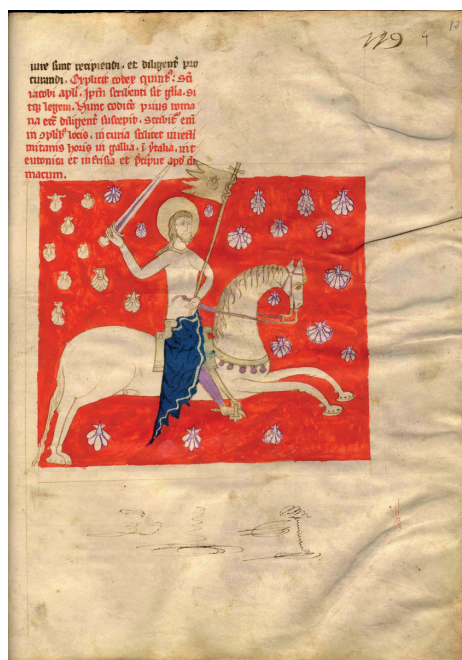 iure sunt recipiendi. et diligent᾽ pro
curandi. Explicit codex quint᾽. sci
iacobi apli. Ipm scribenti sit gl̄a. si
tqꝫ legenti. Hunc codicē prius roma
na ecc̄ diligent᾽ suscepit. scribit᾽ eni
locis. in curia scilicet
horis in gallia. ī ytalia. in t
eutonica et in frisia et precipue apd
macum.